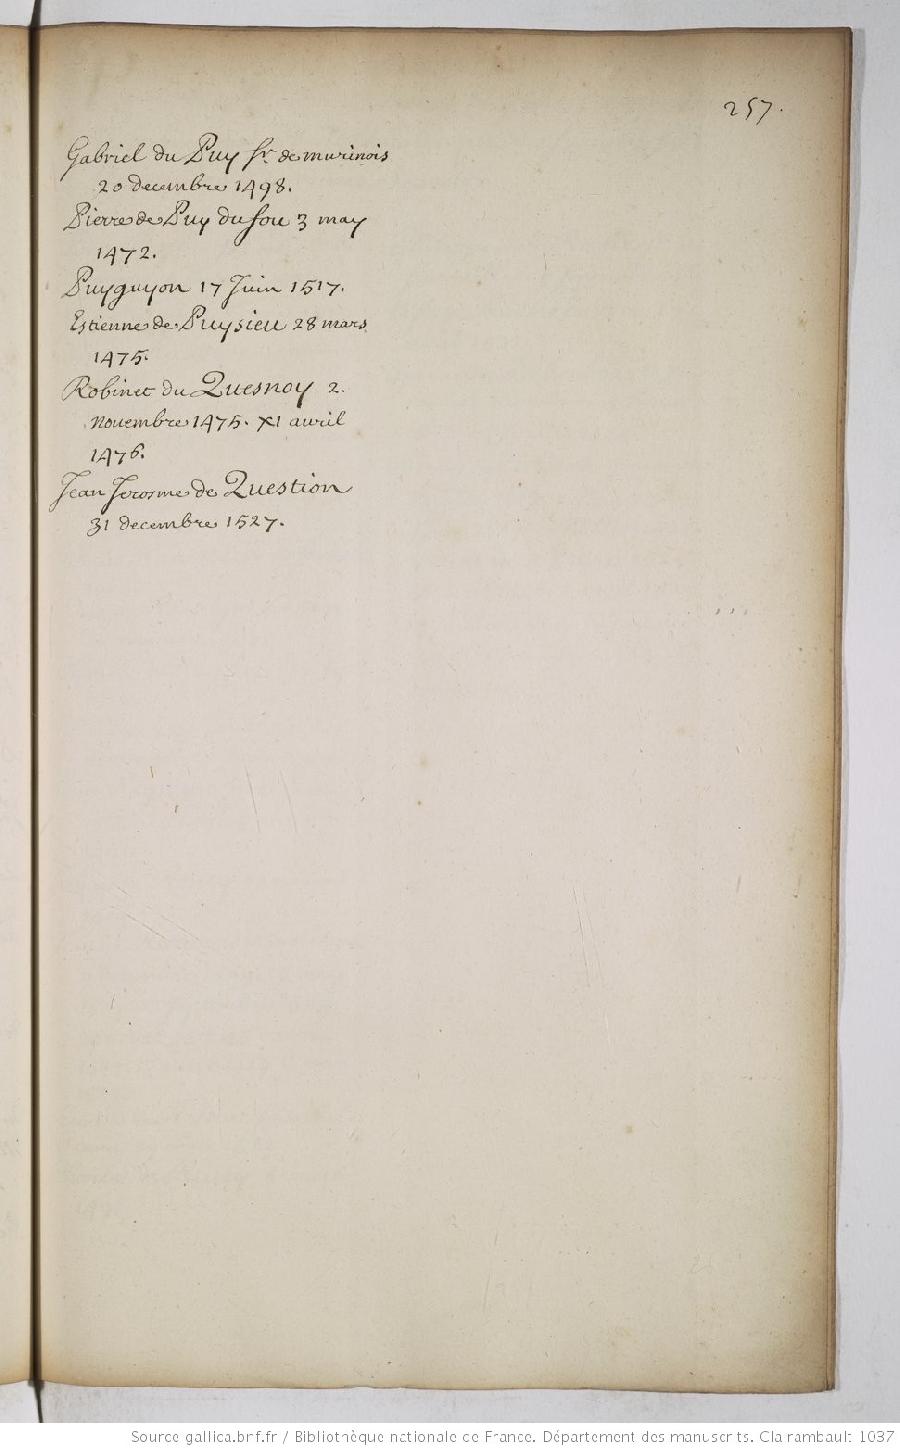 257.
Gabriel du Puy sr. de murinois
20 decembre 1498.
Pierre de Puy du fou 3 may
1472.
Puyguyon 17 Juin 1517.
Estienne de Puysieu 28 mars
1475.
Robinet du Quesnoy 2.
novembre 1475. XI avril
1476.
Jean Jerosme de Question
31 decembre 1527.
Source gallica.bnf.fr / Bibliothèque nationale de France. Département des manuscrits. Clairambault 1037